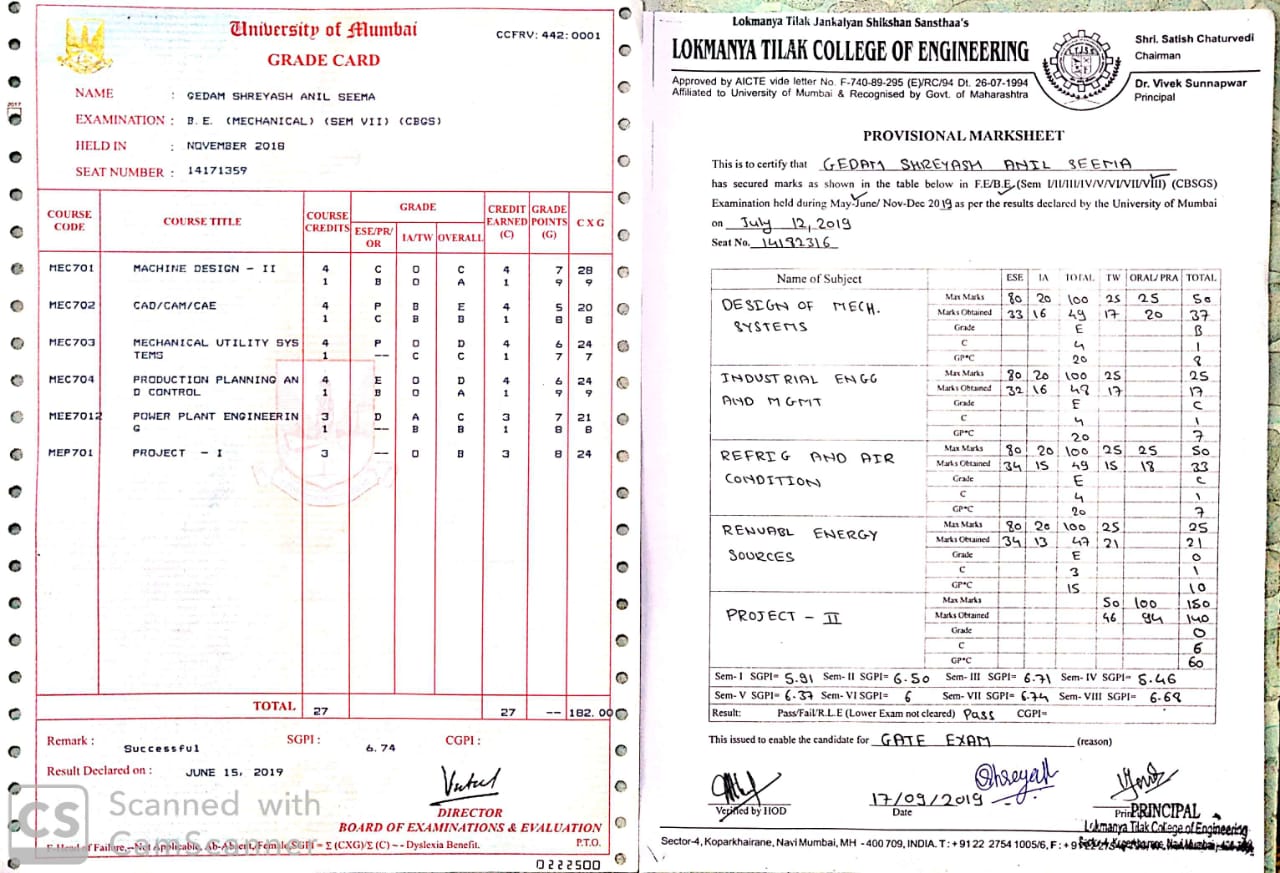 University of Mumbai
GRADE CARD
CCFRV: 442:0001
NAME : GEDAM SHREYASH ANIL SEEMA
EXAMINATION : B.E. (MECHANICAL) (SEM VII) (CBGS)
HELD IN : NOVEMBER 2018
SEAT NUMBER : 14171359
COURSE CODE COURSE TITLE COURSE CREDITS GRADE ESE/PR/OR IA/TW OVERALL CREDIT EARNED (C) GRADE POINTS (G) C X G
MEC701 MACHINE DESIGN - II 4 C O C 4 7 28
1 B O A 1 9 9
MEC702 CAD/CAM/CAE 4 P B E 4 5 20
1 C B B 1 8 8
MEC703 MECHANICAL UTILITY SYS 4 P O D 4 6 24
TEMS 1 -- C C 1 7 7
MEC704 PRODUCTION PLANNING AN 4 E O D 4 6 24
D CONTROL 1 B O A 1 9 9
MEE7012 POWER PLANT ENGINEERIN 3 D A C 3 7 21
G 1 -- B B 1 8 8
MEP701 PROJECT - I 3 -- O B 3 8 24
TOTAL 27 27 -- 182.00
Remark : Successful SGPI : 6.74 CGPI :
Result Declared on : JUNE 15, 2019
DIRECTOR
BOARD OF EXAMINATIONS & EVALUATION
F-Head of Failure,--Not Applicable, Ab-Absent, Female, SGPI = Σ (CXG)/Σ (C) ~ - Dyslexia Benefit. P.T.O.
0222500
CS Scanned with
CamScanner
Lokmanya Tilak Jankalyan Shikshan Sansthaa's
LOKMANYA TILAK COLLEGE OF ENGINEERING
Approved by AICTE vide letter No. F-740-89-295 (E)/RC/94 Dt. 26-07-1994
Affiliated to University of Mumbai & Recognised by Govt. of Maharashtra
Shri. Satish Chaturvedi
Chairman
Dr. Vivek Sunnapwar
Principal
PROVISIONAL MARKSHEET
This is to certify that GEDAM SHREYASH ANIL SEEMA
has secured marks as shown in the table below in F.E/B.E (Sem I/II/III/IV/V/VI/VII/VIII) (CBSGS)
Examination held during May-June/ Nov-Dec 2019 as per the results declared by the University of Mumbai
on July 12, 2019
Seat No. 14192316
Name of Subject ESE IA TOTAL TW ORAL/ PRA TOTAL
DESIGN OF MECH. SYSTEMS
Max Marks 80 20 100 25 25 50
Marks Obtained 33 16 49 17 20 37
Grade E B
C 4 1
GP*C 20 8
INDUSTRIAL ENGG AND MGMT
Max Marks 80 20 100 25 25
Marks Obtained 32 16 48 17 17
Grade E C
C 4 1
GP*C 20 7
REFRIG AND AIR CONDITION
Max Marks 80 20 100 25 25 50
Marks Obtained 34 15 49 15 18 33
Grade E C
C 4 1
GP*C 20 7
RENUABL ENERGY SOURCES
Max Marks 80 20 100 25 25
Marks Obtained 34 13 47 21 21
Grade E O
C 3 1
GP*C 15 10
PROJECT - II
Max Marks 50 100 150
Marks Obtained 46 94 140
Grade O
C 6
GP*C 60
Sem- I SGPI= 5.91 Sem- II SGPI= 6.50 Sem- III SGPI= 6.71 Sem- IV SGPI= 5.46
Sem- V SGPI= 6.37 Sem- VI SGPI= 6 Sem- VII SGPI= 6.74 Sem- VIII SGPI= 6.68
Result: Pass/Fail/R.L.E (Lower Exam not cleared) Pass CGPI=
This issued to enable the candidate for GATE EXAM (reason)
Shreyash
17/09/2019
Verified by HOD Date PRINCIPAL
Lokmanya Tilak College of Engineering
Sector-4, Koparkhairane, Navi Mumbai, MH - 400 709, INDIA. T: +91 22 2754 1005/6, F: